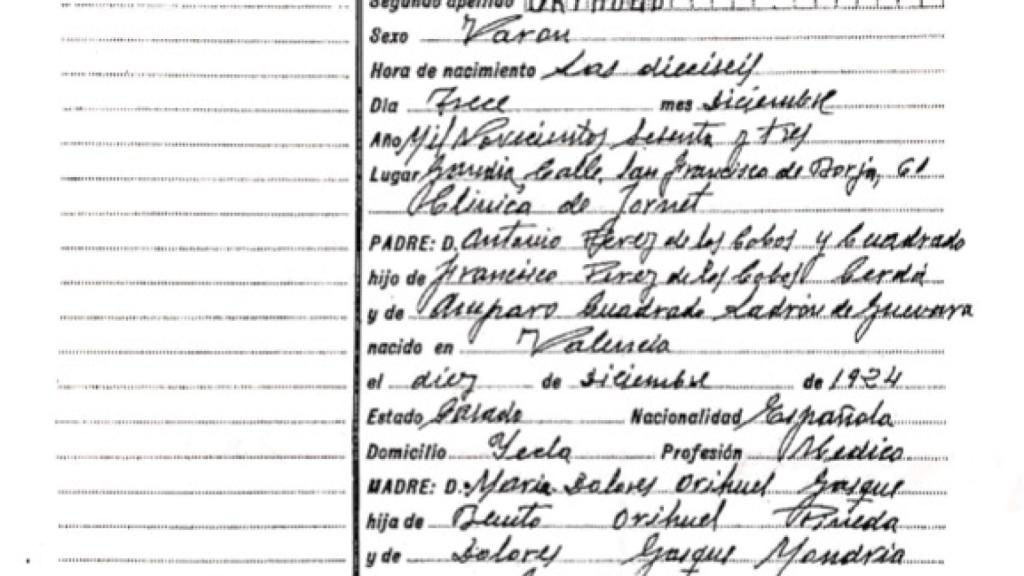 Segundo apellido ORIHUEL
Sexo Varon
Hora de nacimiento Las dieciseis
Día Trece mes Diciembre
Año Mil Novecientos Sesenta y tres
Lugar Gandia, Calle, San Francisco de Borja, 61
Clínica de Tornet
PADRE: D. Antonio Perez de los Cobos y Cuadrado
hijo de Francisco Perez de los Cobos Cerdá
y de Amparo Cuadrado Ladrón de Guevara
nacido en Valencia
el diez de Diciembre de 1924
Estado Casado Nacionalidad Española
Domicilio Yecla Profesión Medico
MADRE: D.ª María Dolores Orihuel Gasque
hija de Benito Orihuel Poñeda
y de Dolores Gasque Mondria